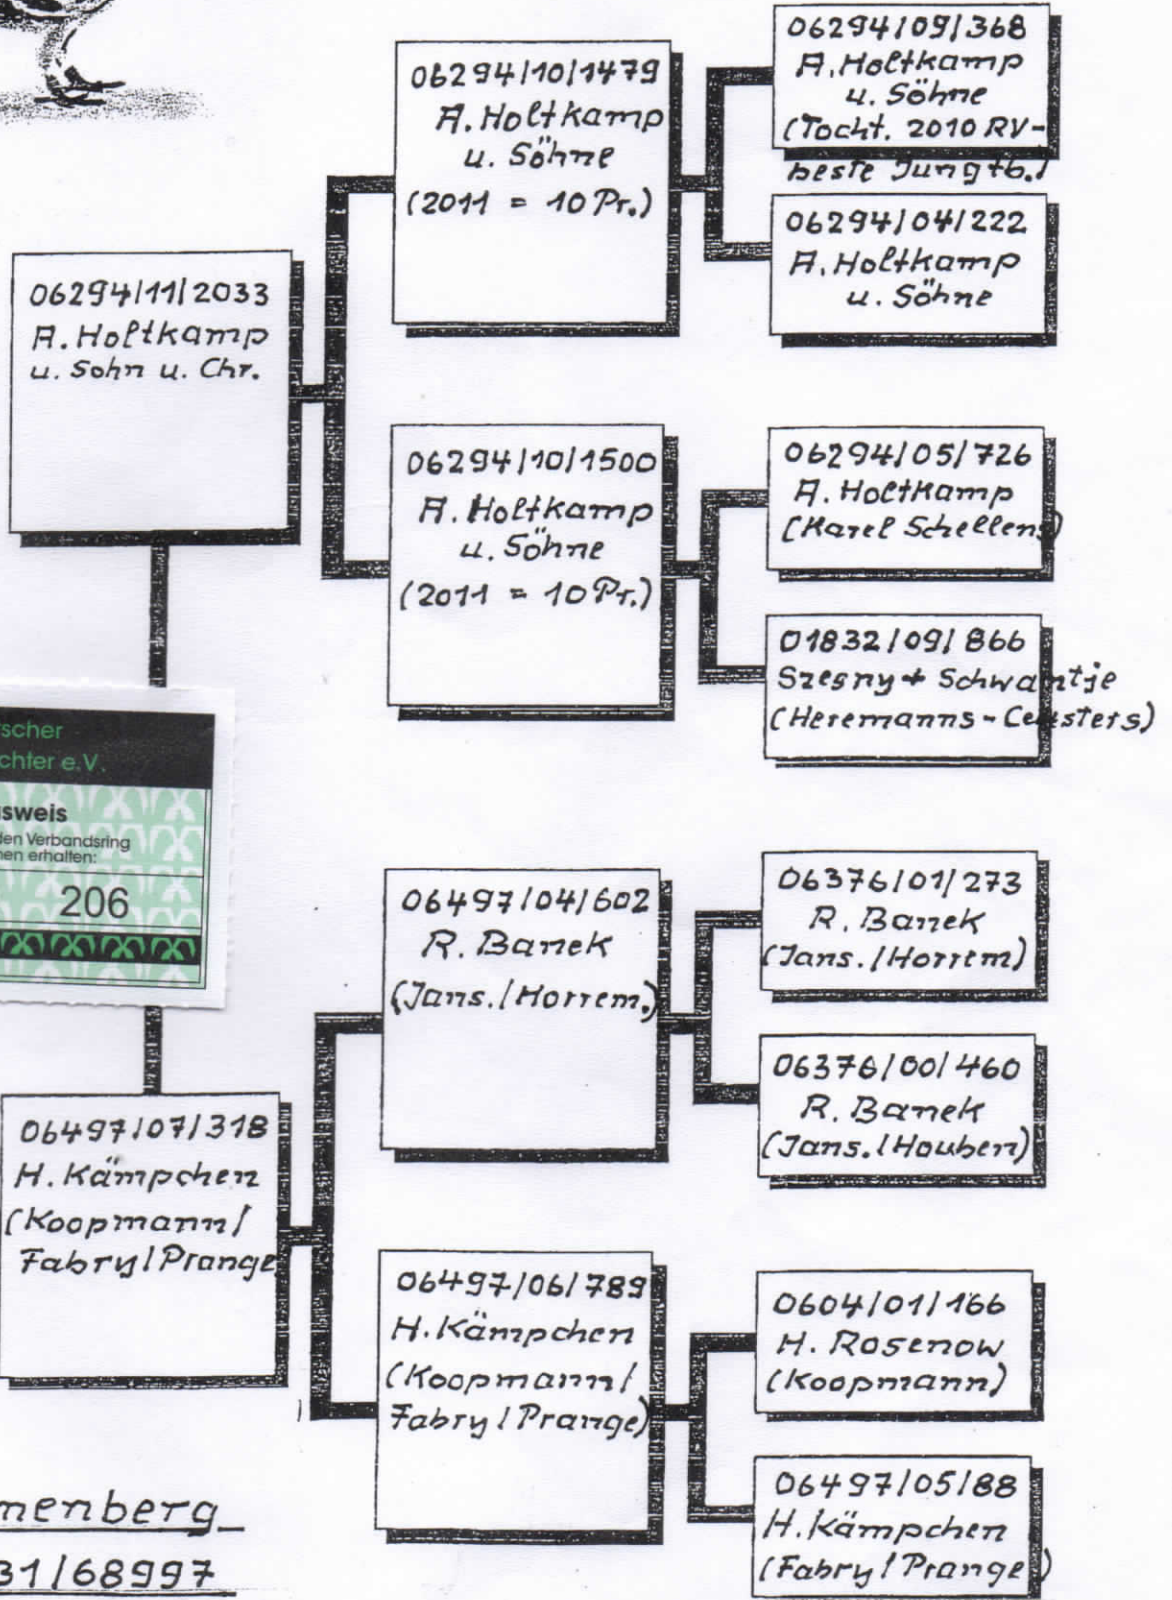 06294/11/2033
A. Holtkamp
u. Sohn u. Chr.
06294/10/1479
A. Holtkamp
u. Söhne
(2011 = 10 Pr.)
06294/09/368
A. Holtkamp
u. Söhne
(Tocht. 2010 RV-
beste Jungtb.)
06294/04/222
A. Holtkamp
u. Söhne
06294/10/1500
A. Holtkamp
u. Söhne
(2011 = 10 Pr.)
06294/05/726
A. Holtkamp
(Karel Schellens)
01832/09/866
Szesny + Schwantje
(Heremanns-Ceusters)
tscher
chter e.V.
usweis
den Verbandsring
nen erhalten:
206
06497/07/318
H. Kämpchen
(Koopmann/
Fabry/Prange
06497/04/602
R. Banek
(Jans./Horrem.)
06376/01/273
R. Banek
(Jans./Horrem)
06376/00/460
R. Banek
(Jans./Houben)
06497/06/789
H. Kämpchen
(Koopmann/
Fabry/Prange)
0604/01/166
H. Rosenow
(Koopmann)
06497/05/88
H. Kämpchen
(Fabry/Prange)
menberg
31/68997